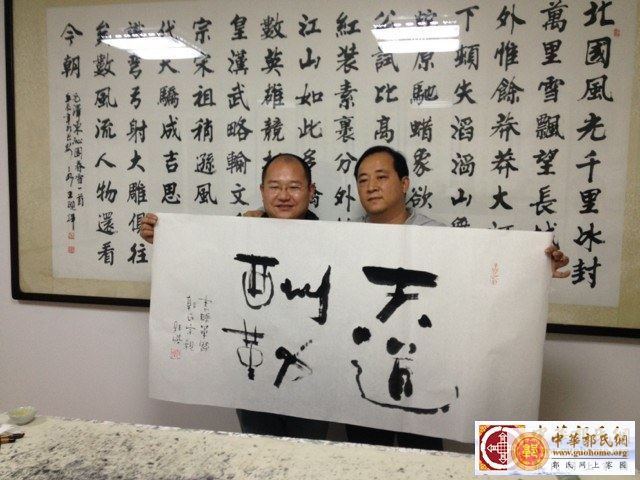 北國風光千里冰封
萬里雪飄望長城
外惟餘莽莽大河
下頓失滔滔山舞
蛇原馳蠟象欲
公試比高
紅裝素裹分外
江山如此多
數英雄競
皇漢武略輸文
宗宋祖稍遜風
代天驕成吉思
識彎弓射大雕俱往
矣數風流人物還看
今朝
毛澤東沁園春雪一首
天道
酬勤
郭氏宗親
中華郭氏網
www.guohome.org
郭氏网上家園